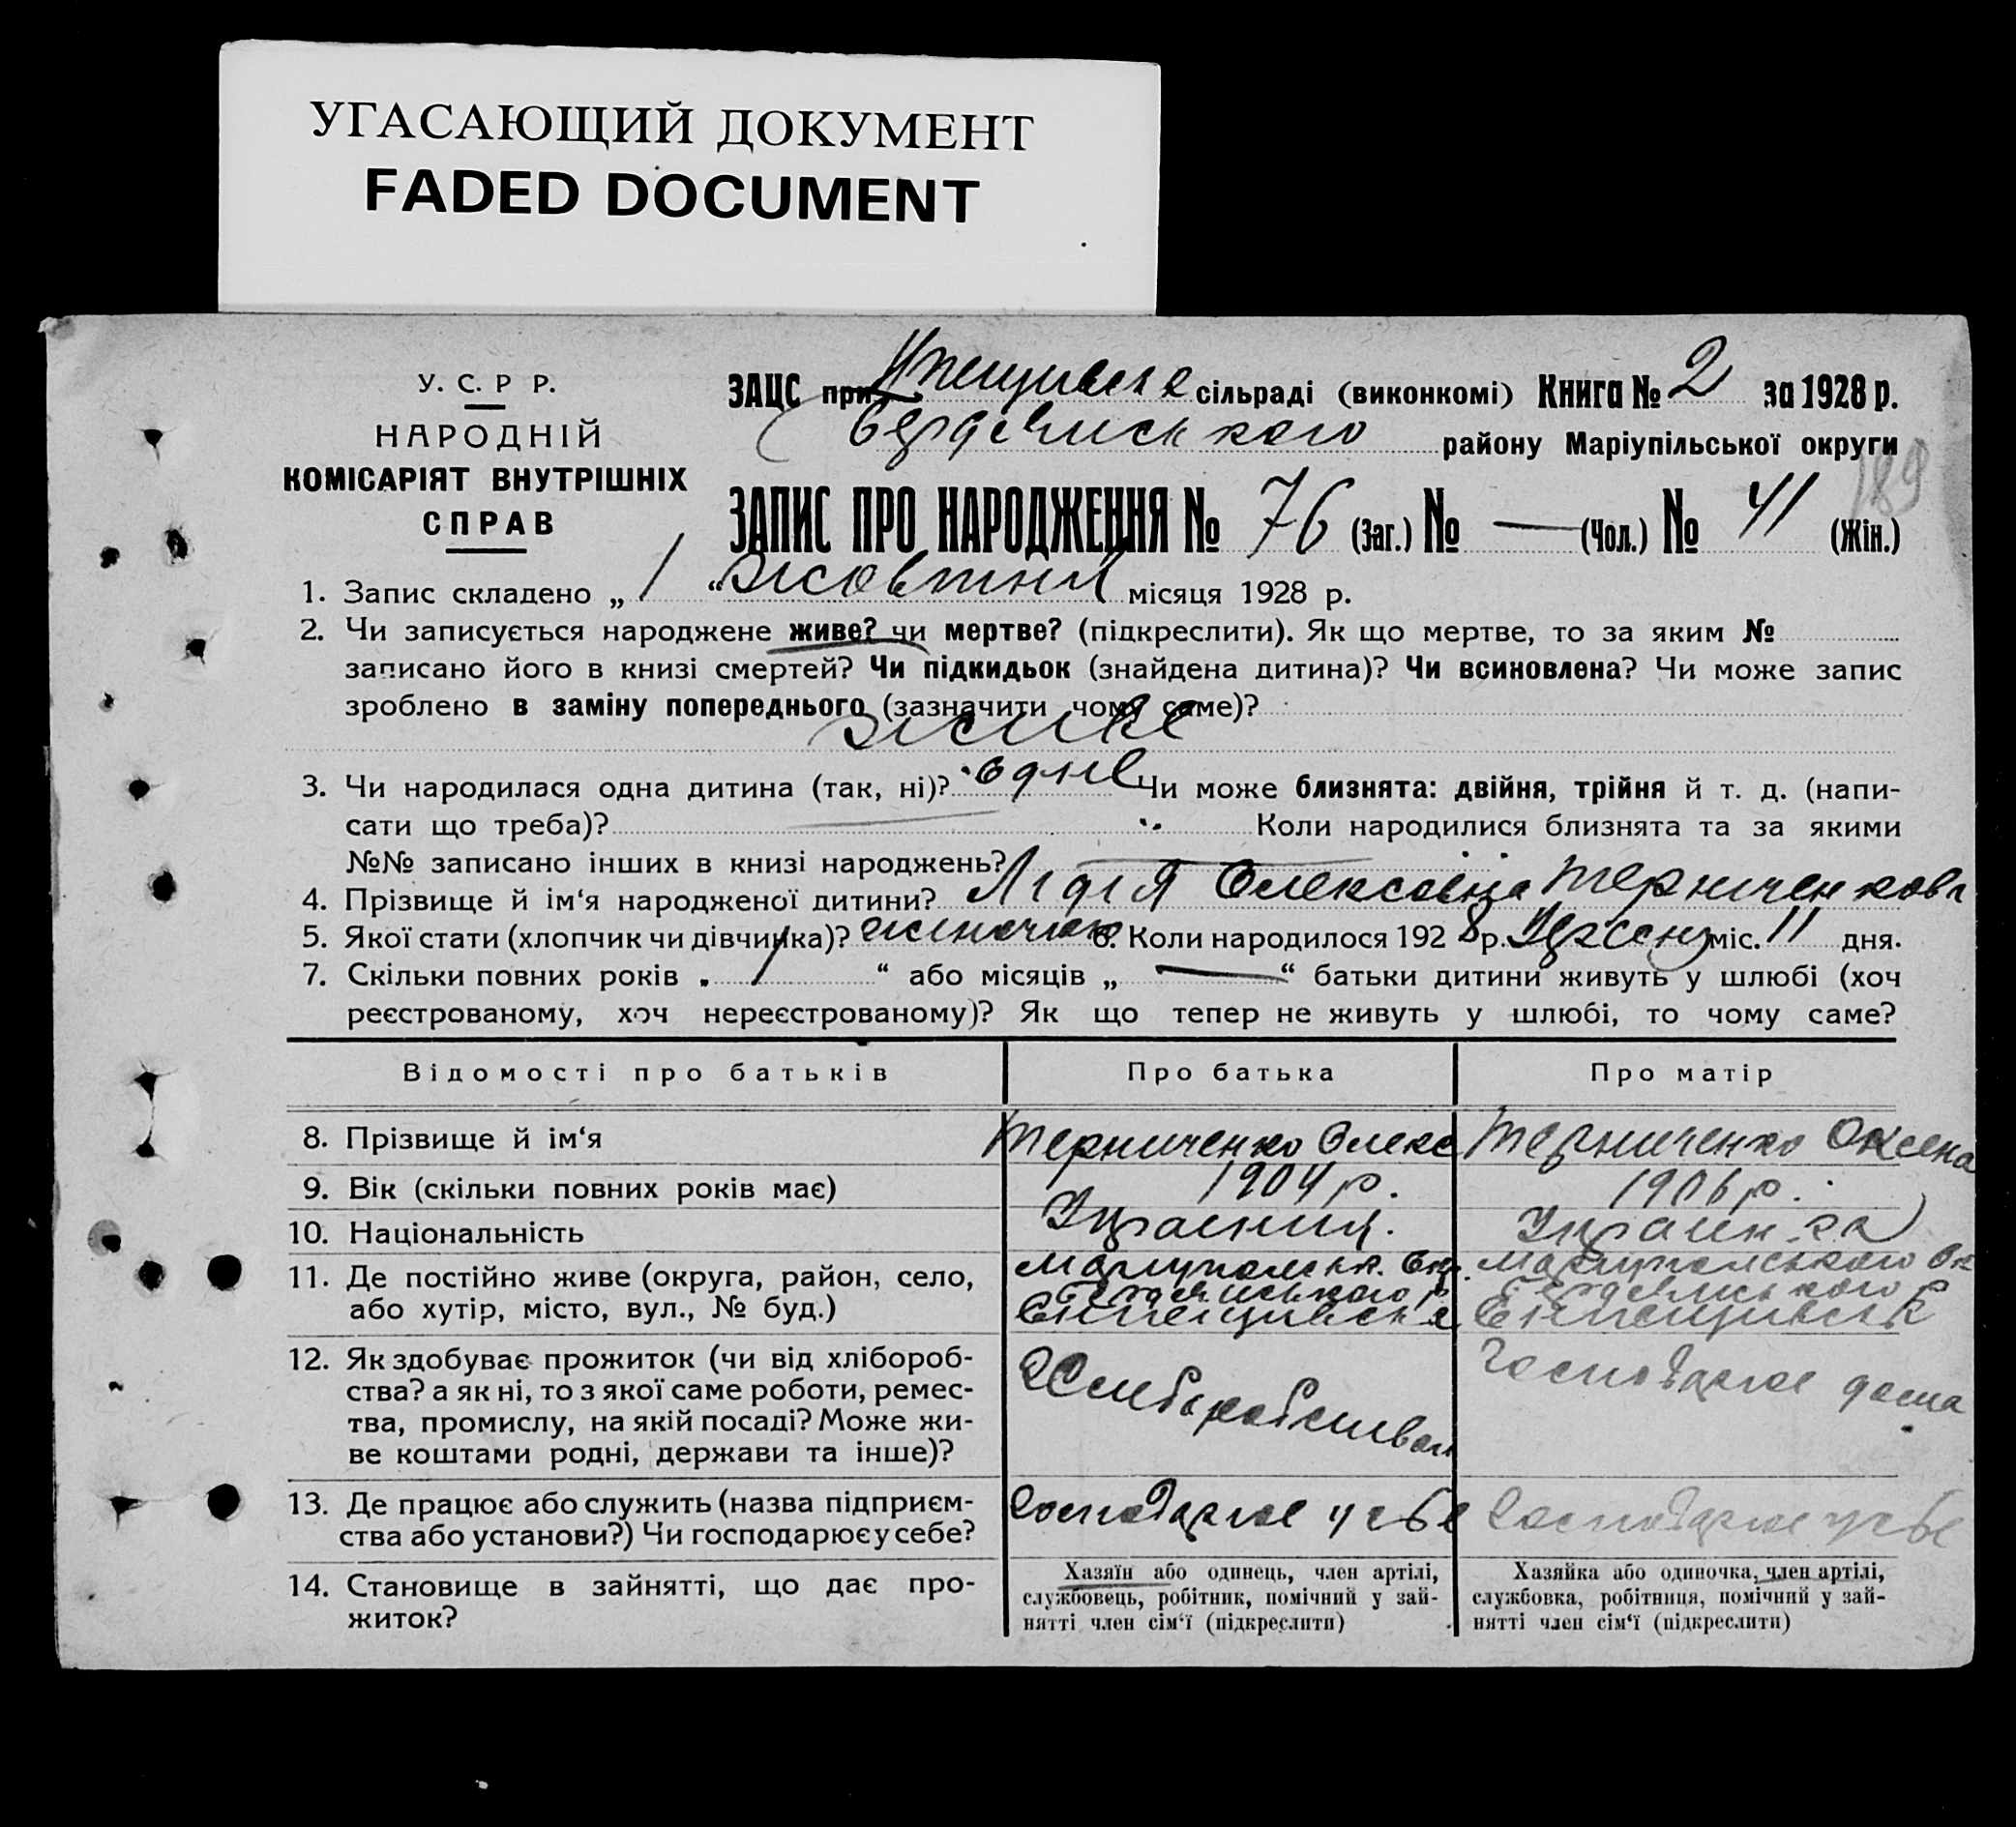 УГАСАЮЩИЙ ДОКУМЕНТ
FADED DOCUMENT
У. С. Р Р.
НАРОДНІЙ
КОМІСАРІЯТ ВНУТРІШНІХ
СПРАВ
ЗАЦС при сільраді (виконкомі) Книга № 2 за 1928 р.
району Маріупільської округи
189
ЗАПИС ПРО НАРОДЖЕННЯ № 76 (Заг.) № — (Чол.) № 41 (Жін.)
1. Запис складено „ 1 “ жовтня місяця 1928 р.
2. Чи записується народжене живе? чи мертве? (підкреслити). Як що мертве, то за яким №
записано його в книзі смертей? Чи підкидьок (знайдена дитина)? Чи всиновлена? Чи може запис
зроблено в заміну попереднього (зазначити чому саме)?
живе
3. Чи народилася одна дитина (так, ні)? одне Чи може близнята: двійня, трійня й т. д. (напи-
сати що треба)? Коли народилися близнята та за якими
№№ записано інших в книзі народжень?
4. Прізвище й ім‘я народженої дитини? Лідія Олексеівна Терниченкова
5. Якої стати (хлопчик чи дівчинка)? жиночого 6. Коли народилося 1928 р. міс. 11 дня.
7. Скільки повних років „ 1 “ або місяців „ — “ батьки дитини живуть у шлюбі (хоч
реєстрованому, хоч нереєстрованому)? Як що тепер не живуть у шлюбі, то чому саме?
Відомості про батьків Про батька Про матір
8. Прізвище й ім‘я Терниченко Олекс Терниченко Оксена
9. Вік (скільки повних років має) 1904 р. 1906 р.
10. Національність
11. Де постійно живе (округа, район, село,
або хутір, місто, вул., № буд.)
12. Як здобуває прожиток (чи від хлібороб-
ства? а як ні, то з якої саме роботи, ремес-
тва, промислу, на якій посаді? Може жи-
ве коштами родні, держави та інше)?
Хлиборобством
Господарює дома
13. Де працює або служить (назва підприєм-
ства або установи?) Чи господарює у себе?
Господарює у себе Господарює у себе
14. Становище в зайнятті, що дає про-
житок?
Хазяїн або одинець, член артілі,
службовець, робітник, помічний у зай-
нятті член сім‘ї (підкреслити)
Хазяйка або одиночка, член артілі,
службовка, робітниця, помічний у зай-
нятті член сім‘ї (підкреслити)